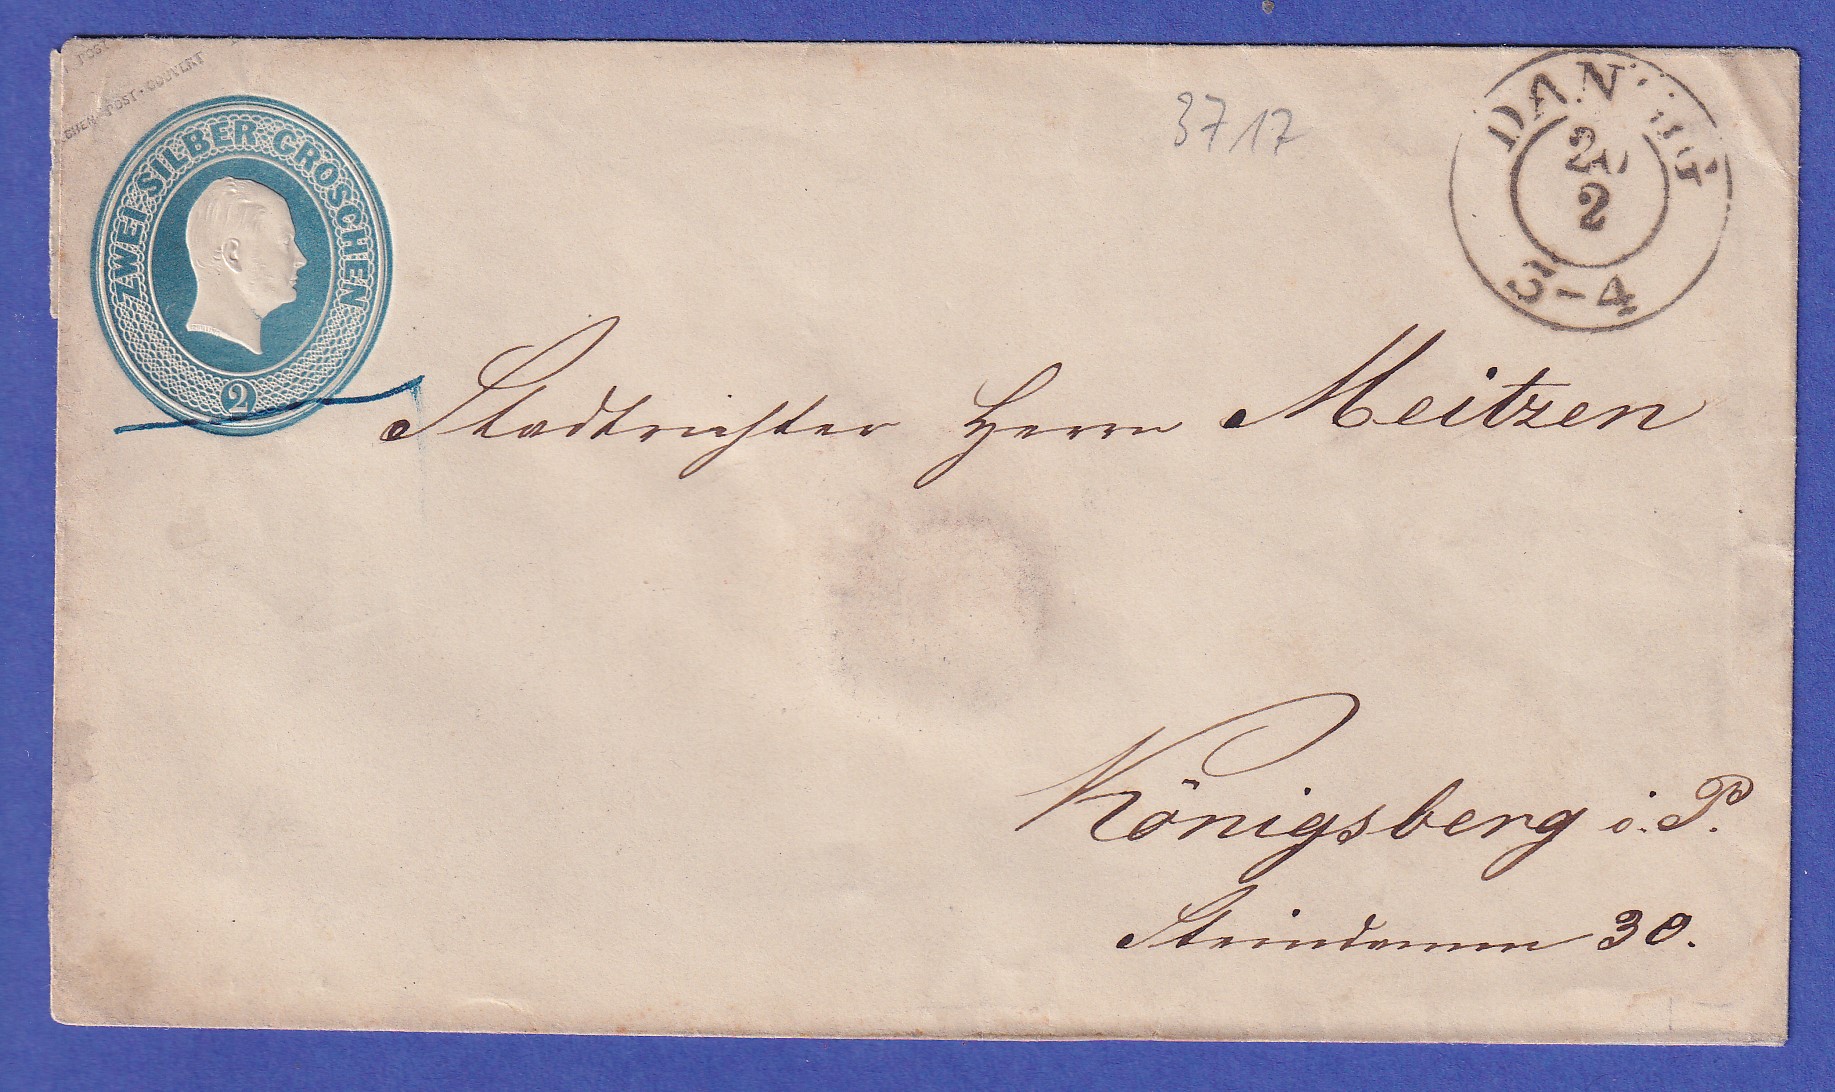 POST
CHEN · POST · COUVERT
ZWEI SILBER GROSCHEN
2
3717
DANZIG
20
2
3-4
Stadtrichter Herrn Meitzen
Königsberg i. P.
Steindamm 30.